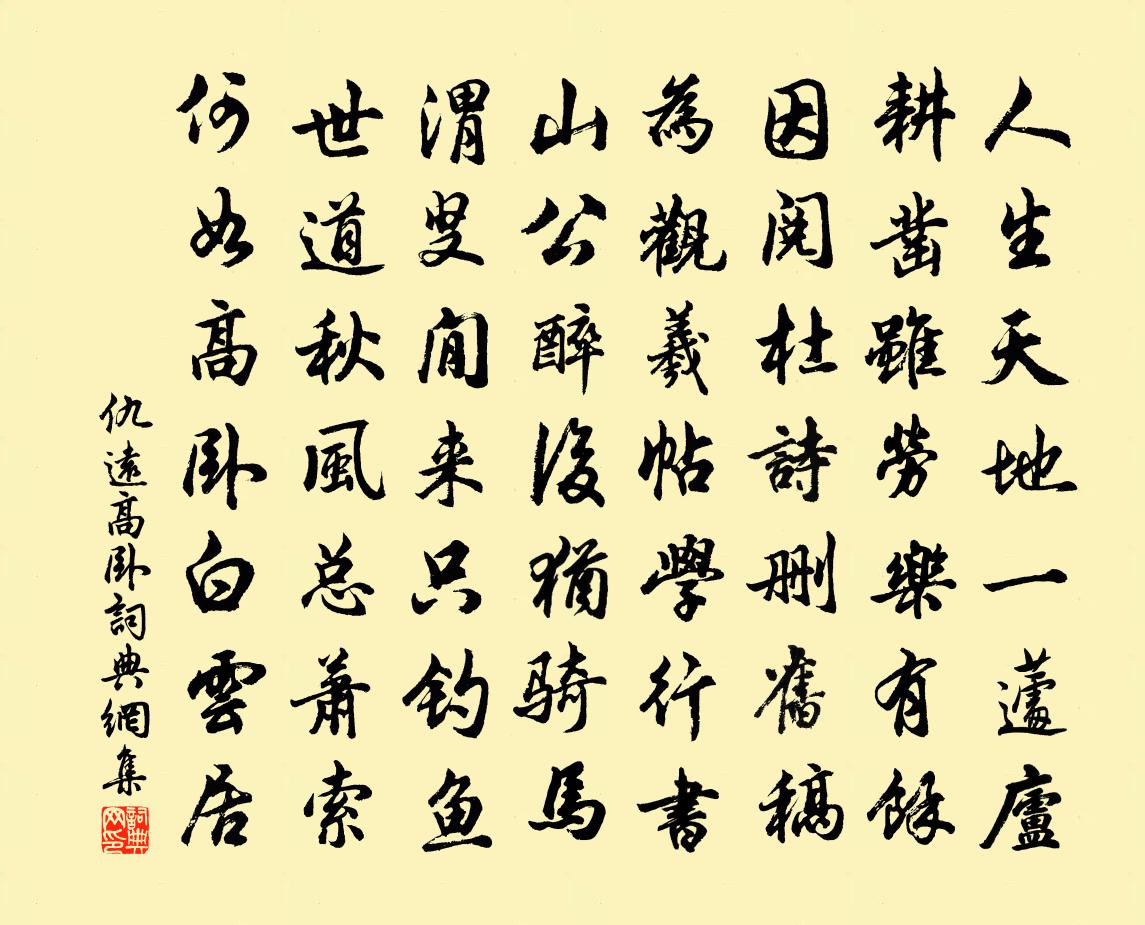 人生天地一蘧廬
耕鑿雖勞樂有餘
因閱杜詩刪舊稿
為觀羲帖學行書
山公醉後猶騎馬
渭叟閒来只釣魚
世道秋風总蕭索
何如高卧白雲居
仇遠高卧詞典網集
詞典网印